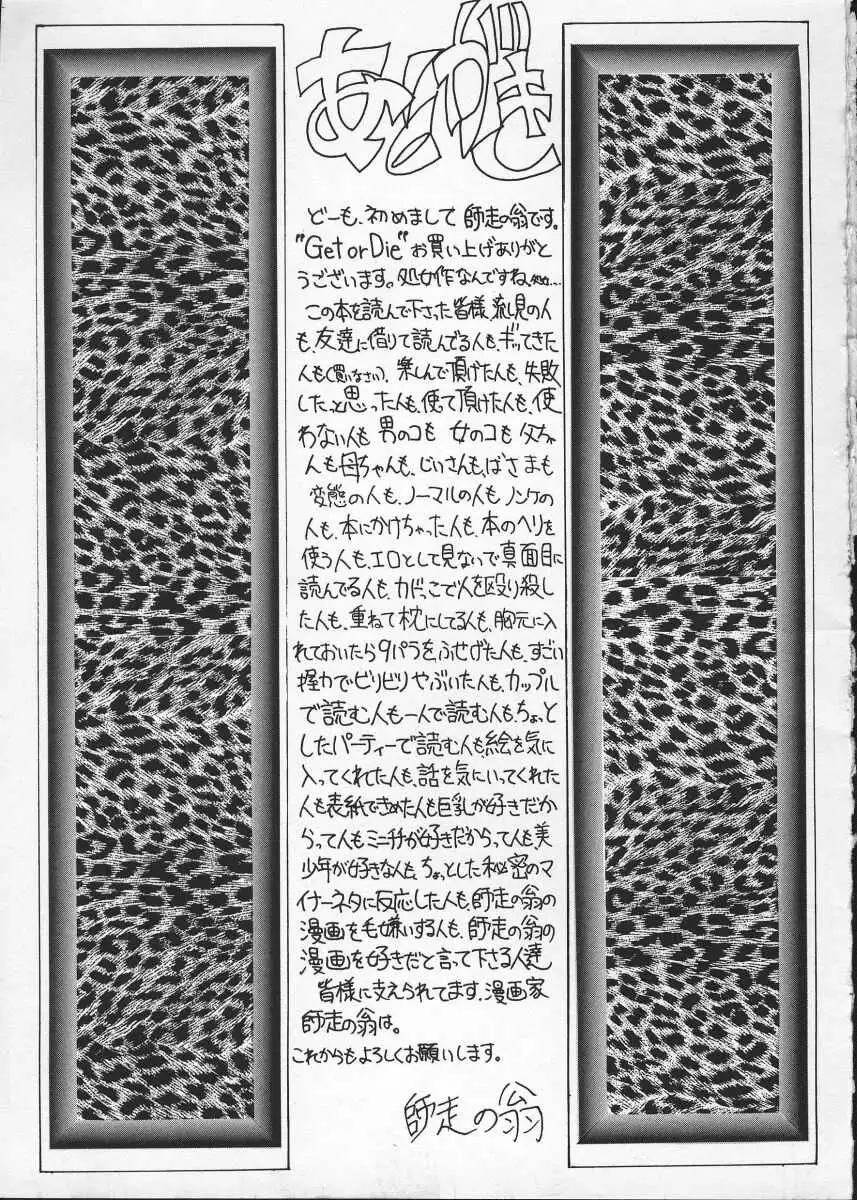 あとがき
どーも、初めまして 師走の翁です。
"Get or Die"お買い上げありがと
うございます。処女作なんですね、
この本を読んで下さった皆様、流し見の人
も、友達に借りて読んでる人も、ギってきた
人も(買いなさい)、楽しんで頂けた人も、失敗
したっと思った人も、使って頂けた人も、使
わない人も 男のコも 女のコも 父ちゃ
人も母ちゃんも、じいさんも、ばさまも
変態の人も、ノーマルの人も ノンケの
人も、本にかけちゃった人も、本のヘリを
使う人も、エロとして見ないで真面目に
読んでる人も、カドっこで人を殴り殺し
た人も、重ねて枕にしてる人も、胸元に入
れておいたら9パラをふせげた人も、すごい
握力でビリビリやぶいた人も、カップル
で読む人も一人で読む人も、ちょっと
したパーティーで読む人も、絵を気に
入ってくれた人も、話を気にいってくれた
人も表紙できめた人も巨乳が好きだか
らって人もミニチチが好きだからって人も美
少年が好きな人も、ちょっとした秘密のマ
イナーネタに反応した人も、師走の翁の
漫画を毛嫌いする人も、師走の翁の
漫画を好きだと言って下さる人達
皆様に支えられてます。漫画家
師走の翁は。
これからもよろしくお願いします。
師走の翁